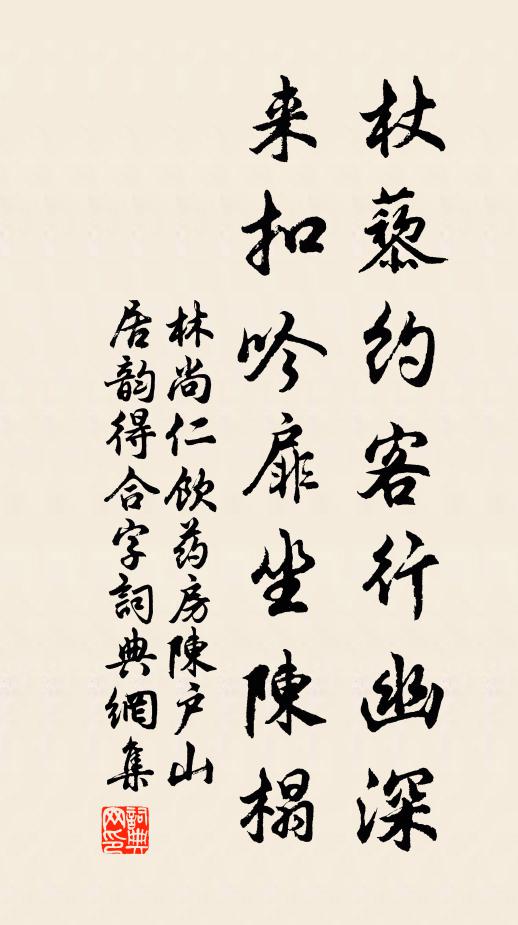 杖藜约客行幽深
来扣吟扉坐陳榻
林尚仁饮药房陳户山
居韵得合字詞典網集
詞典
网印